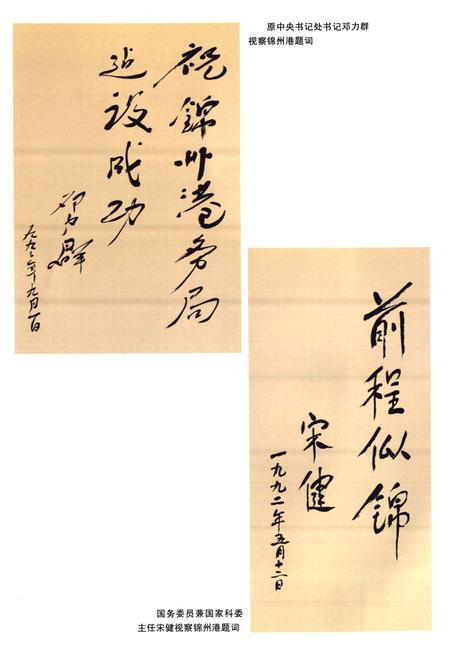 原中央书记处书记邓力群
视察锦州港题词
祝锦州港务局
建设成功
邓力群
一九九二年九月一日
前程似锦
宋健
一九九二年五月十二日
国务委员兼国家科委
主任宋健视察锦州港题词